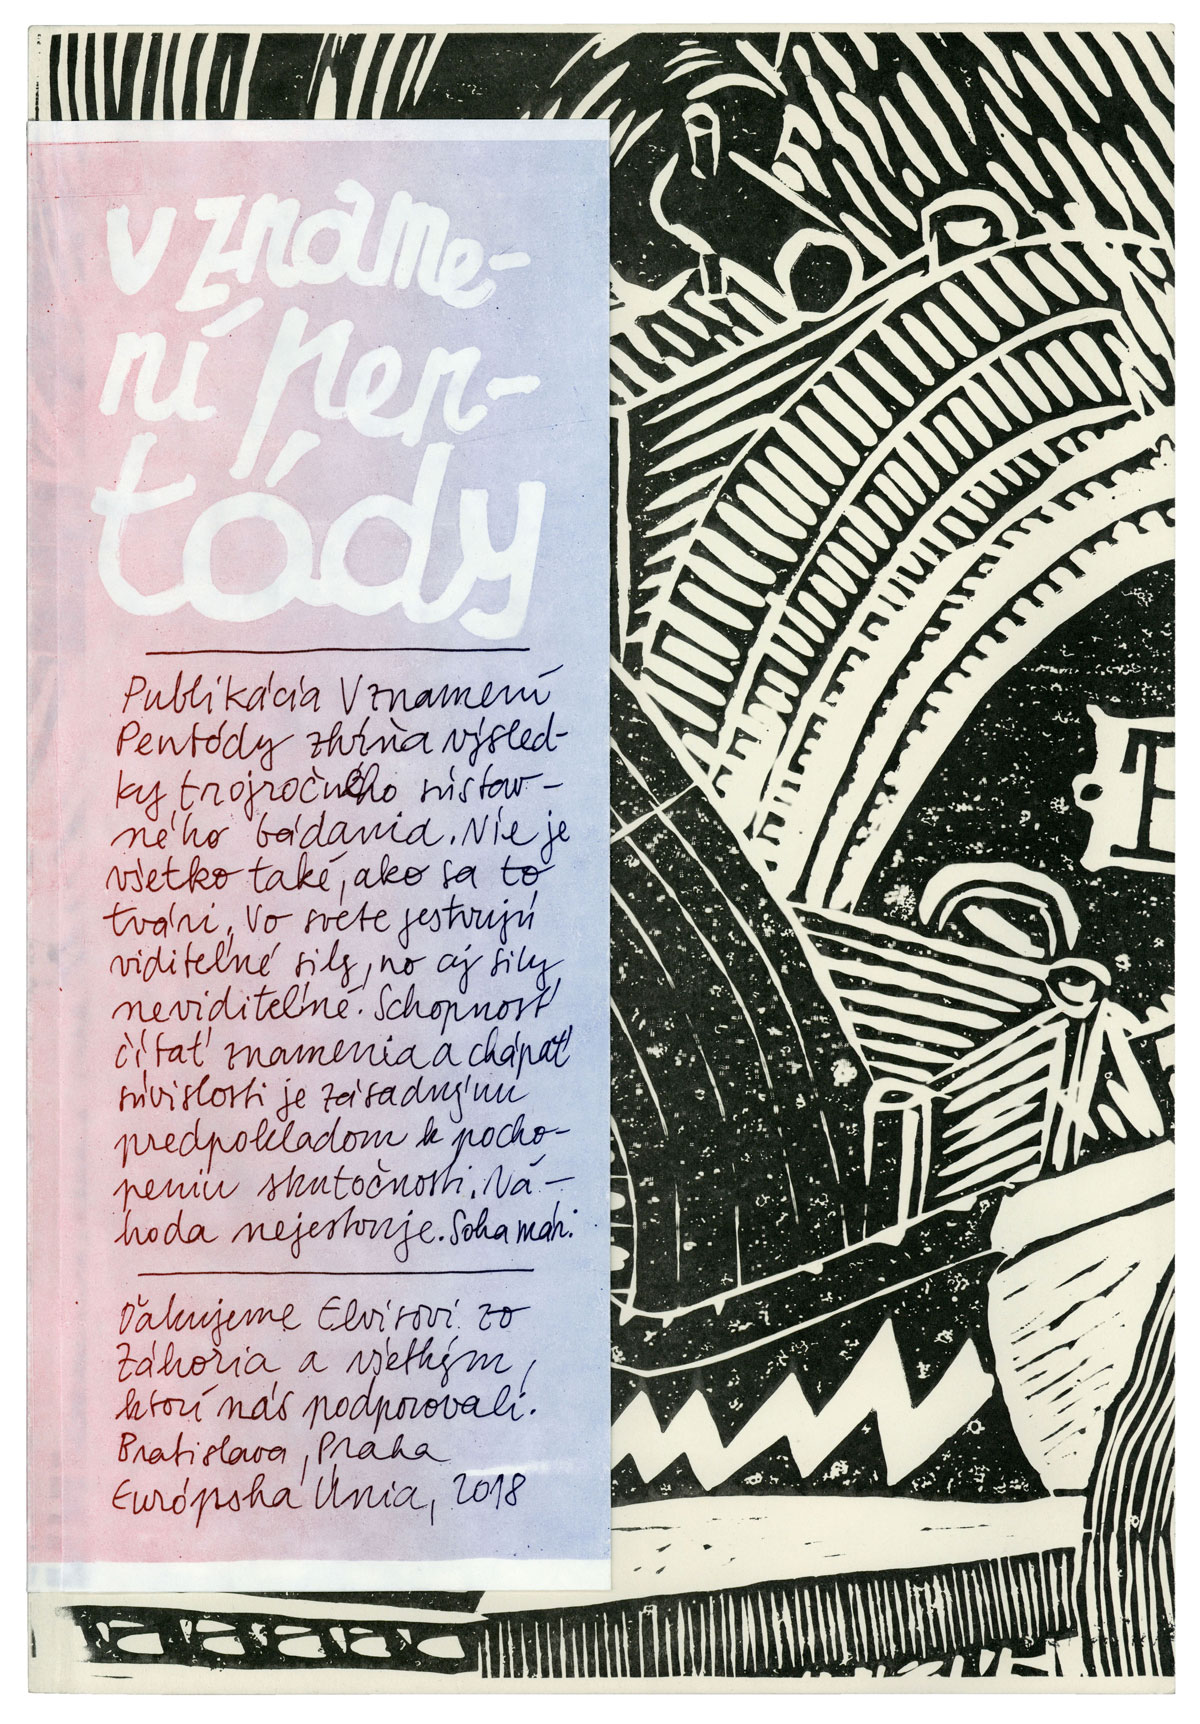 v zname-
ní pen-
tódy
Publikácia V znamení
Pentódy zhŕňa výsled-
ky trojročného sústav-
ného bádania. Nie je
všetko také, ako sa to
tvári. Vo svete jestvujú
viditeľné sily, no aj sily
neviditeľné. Schopnosť
čítať znamenia a chápať
súvislosti je zásadným
predpokladom k pocho-
peniu skutočnosti. Ná-
hoda nejestvuje.
Ďakujeme Elvisovi zo
Záhoria a všetkým,
ktorí nás podporovali.
Bratislava, Praha
Európska Únia, 2018